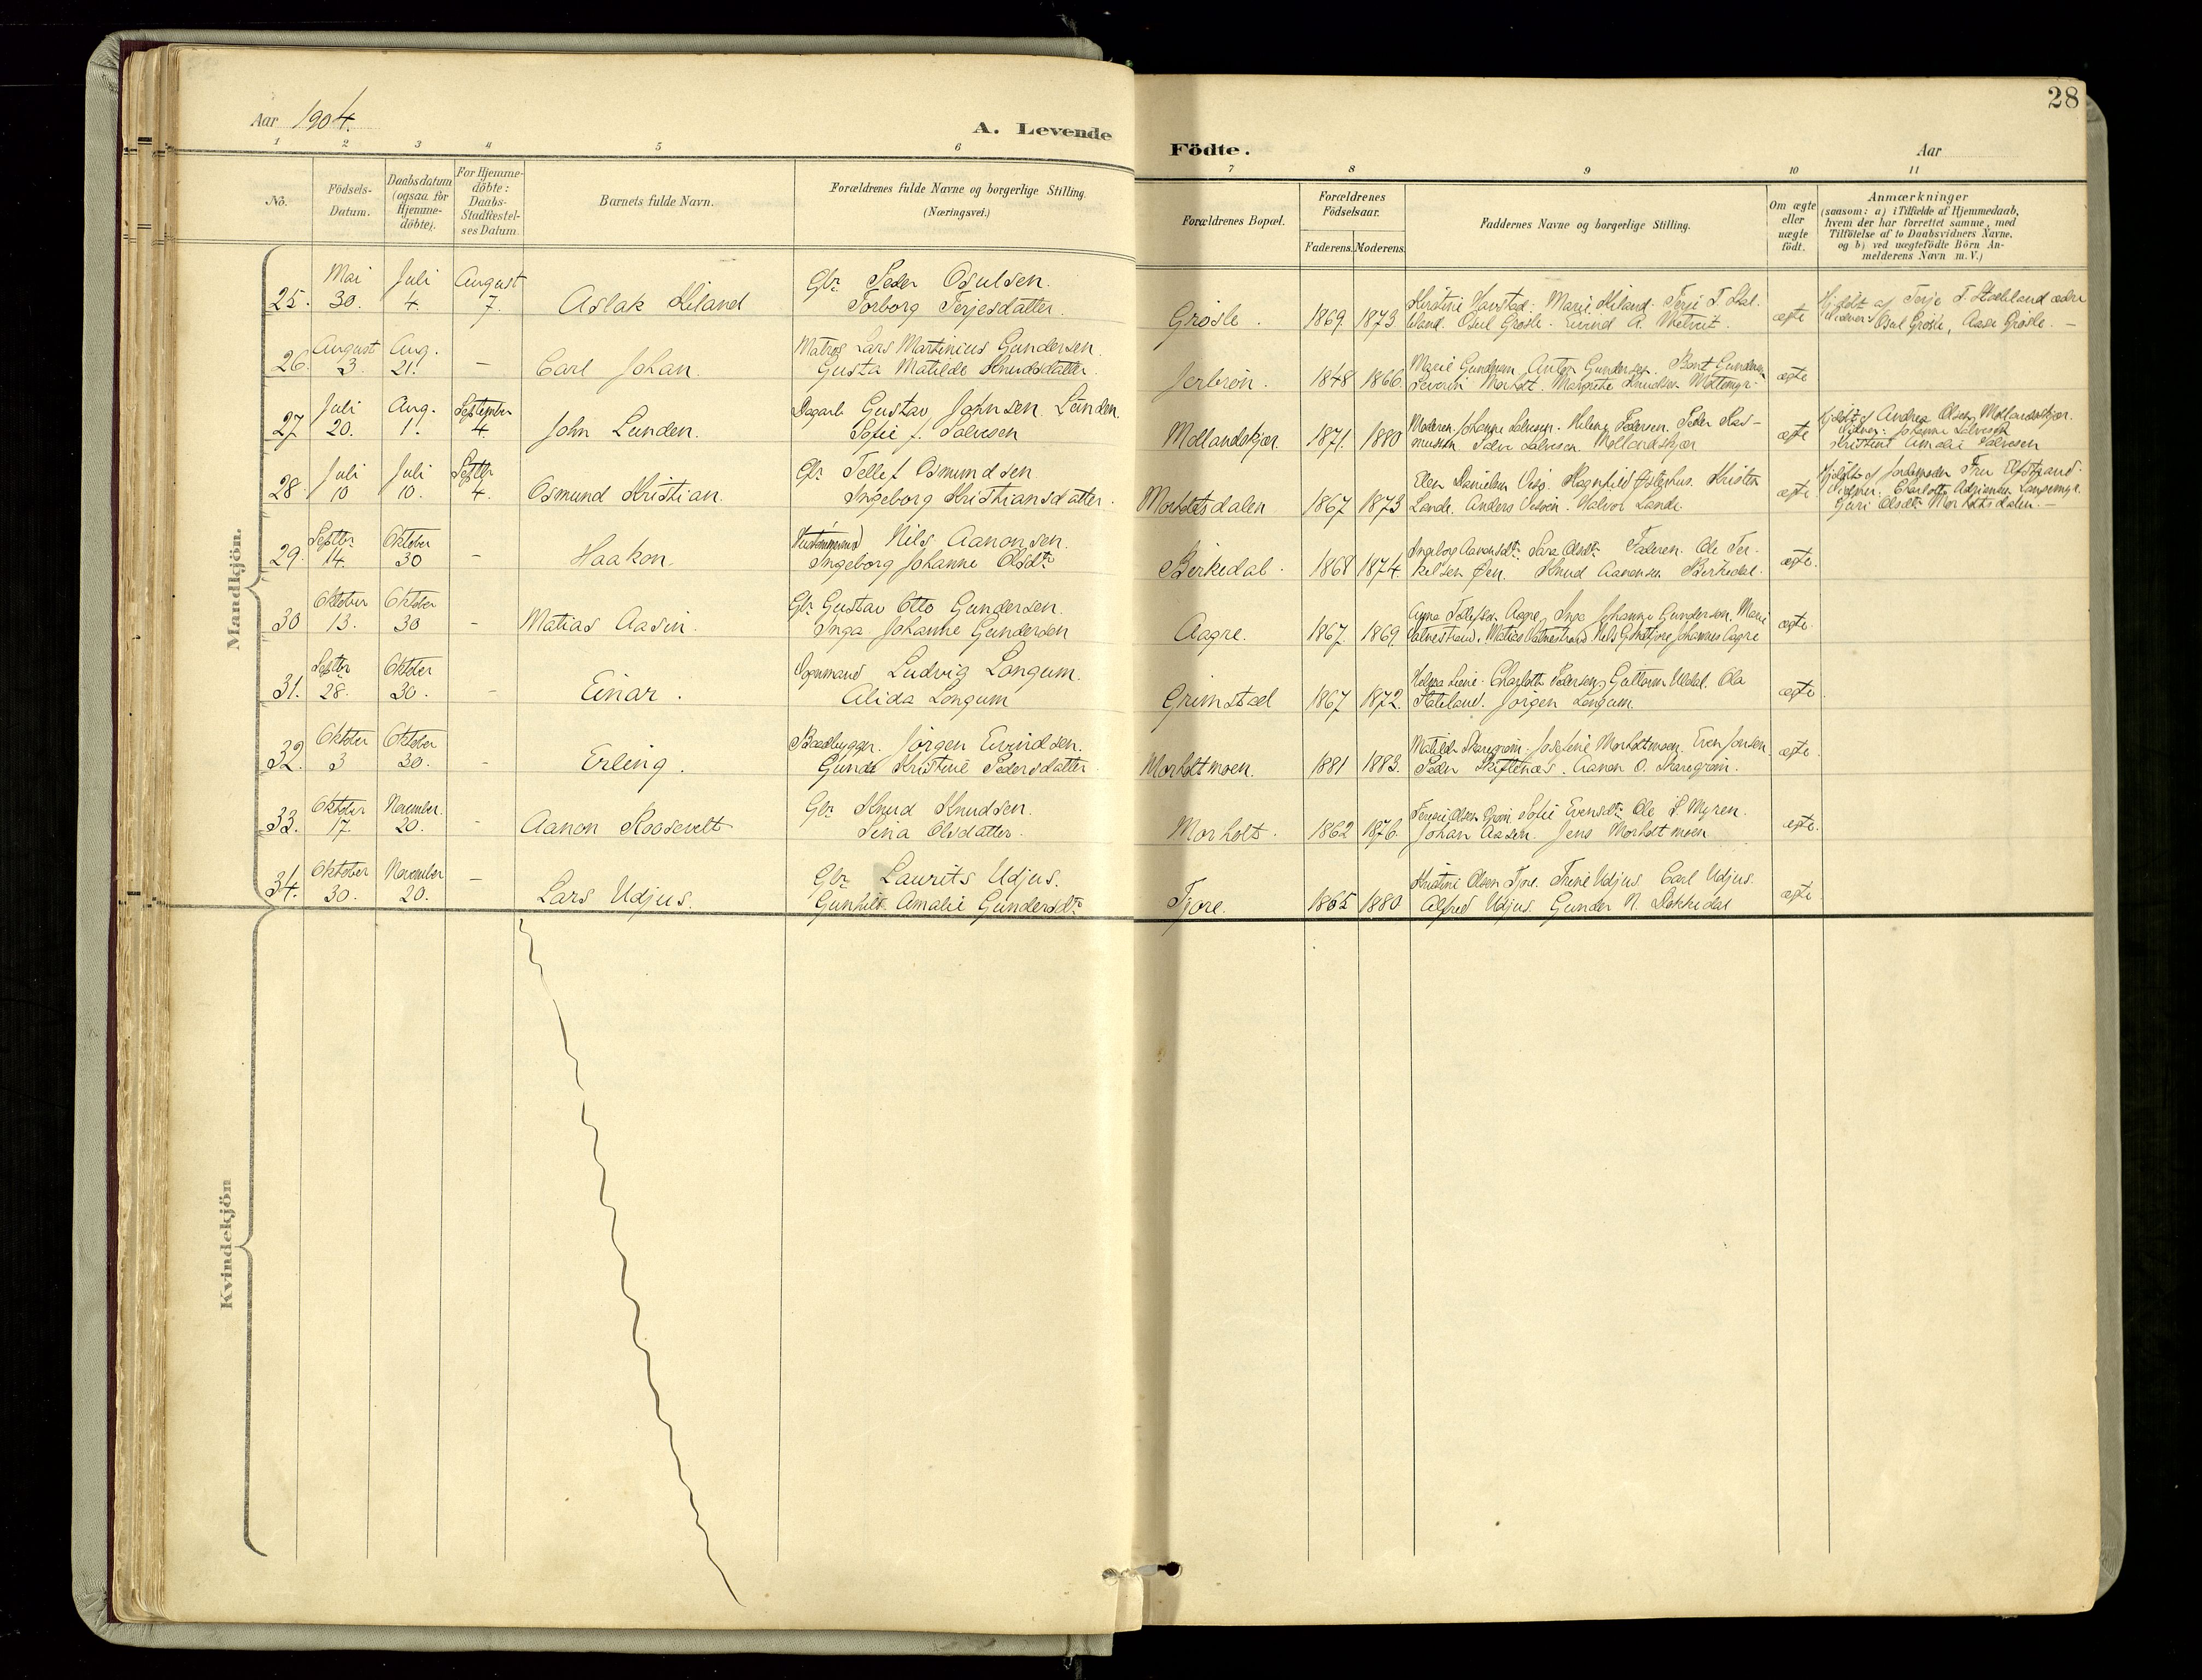 28
Aar 1904.
A. Levende Födte.
Aar
1 2 3 4 5 6 7 8 9 10 11
No.
Födsels-
Datum.
Daabsdatum
(ogsaa for
Hjemme-
döbte).
For Hjemme-
döbte:
Daabs-
Stadfæstel-
ses Datum.
Barnets fulde Navn.
Forældrenes fulde Navne og borgerlige Stilling.
(Næringsvei.)
Forældrenes Bopæl.
Forældrenes
Födselsaar.
Faderens. Moderens.
Faddernes Navne og borgerlige Stilling.
Om ægte
eller
uægte
födt.
Anmærkninger
(saasom: a) i Tilfælde af Hjemmedaab,
hvem der har forrettet samme, med
Tilföielse af to Daabsvidners Navne.
og b) ved uægtefödte Börn An-
melderens Navn m. V.)
Mandkjön.
25. Mai 30. Juli 4. August 7. Aslak Kiland
Gbr. Peder Osulsen.
Torborg Terjesdatter.
Grösle. 1869. 1873.
Kirstine Havstad. Marie Kiland. Terje T.
Osul Grösle. Eivind A.
ægte
Hjdöbt af Terje T. Stabbland
Vidner: Osul Grösle, Aase Grösle. –
26. August 3. Aug. 21. – Carl Johan.
Matros Lars Martinius Gundersen.
Gusta Matilde Knudsdatter.
1848 1866.
Marie Gundersen Anton Gundersen. Gundersen
Severin Morholt. Margrete Knudsen
ægte
27 Juli 20. Aug. 1. September 4. John Lunden.
Dagarb. Gustav Johnsen Lunden.
Sofie J. Salvesen
Mollandskjær. 1871. 1880
Moderen. Johanne Salvesen. Helene Pedersen. Peder Ras-
mussen. Salve Salvesen Mollandskjær
ægte
Hjdöbt af Andrea Olsen Mollandskjær.
Vidner: Johanne Salvesen
Kristine Amalie Salvesen
28. Juli 10 Juli 10. Septbr 4. Osmund Kristian.
Gbr. Tellef Osmundsen.
Ingeborg Kristiansdatter.
Morholtsdalen 1867 1873
Ellen Danielsen Ragnhild Kristen
Lande. Anders Halvor Lande.
ægte.
Hjdöbt af Jordemoder Fru
Vidner: Charlotte Adriansen
Guri Olsdtr Morholtsdalen. –
29. Septbr 14. Oktober 30 – Haakon.
Nils Aanonsen.
Ingeborg Johanne Olsdtr
Birkedal. 1868 1874.
Ingeborg Aanonsdtr. Sara Olsdtr. Faderen. Ole Ter-
kelsen Öen. Knud Aanonsen Birkedal.
ægte.
30 Oktober 13. Oktober 30 – Matias Aasin.
Gbr. Gustav Otto Gundersen.
Inga Johanne Gundersen
Aagre. 1867. 1869.
Anna Tellefsen Aagre, Inga Johanne Gundersen, Marie
Vatnestrand. Matias Vatnestrand Johannes Aagre
ægte.
31. Septbr 28. Oktober 30. – Einar.
Vognmand Ludvig Longum.
Alida Longum
Grimstad 1867 1872.
Charlotte Pedersen, Guttorm Uldal. Ola
Jörgen Longum.
ægte.
32. Oktober 3 Oktober 30. – Erling.
Baadbygger. Jörgen Evindsen.
Gunda Kristine Pedersdatter
Morholtmoen. 1881 1883.
Matilde Skaregröm. Josefine Morholtmoen. Even Jonsen
Peder Skiftenæs. Aanon O. Skaregröm.
ægte.
33. Oktober 17. November 20. – Aanon Roosevelt
Gbr. Knud Knudsen.
Sina Olsdatter.
Morholt. 1862 1876.
Olsen Gröm. Sofie Evensdtr. Ole S. Myren.
Johan Aasen. Jens Morholtmoen
ægte.
34. Oktober 30. November 20. – Lars Udjus.
Gbr. Laurits Udjus.
Gunhild Amalie Gundersdtr
Tjore. 1865 1880
Kristine Olsen Tjore. Trine Udjus Carl Udjus.
Alfred Udjus. Gunder N. Dokkedal
ægte
Kvindekjön